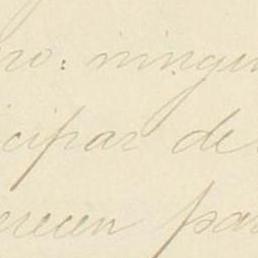 ro: ningun
icipar de
erecen par